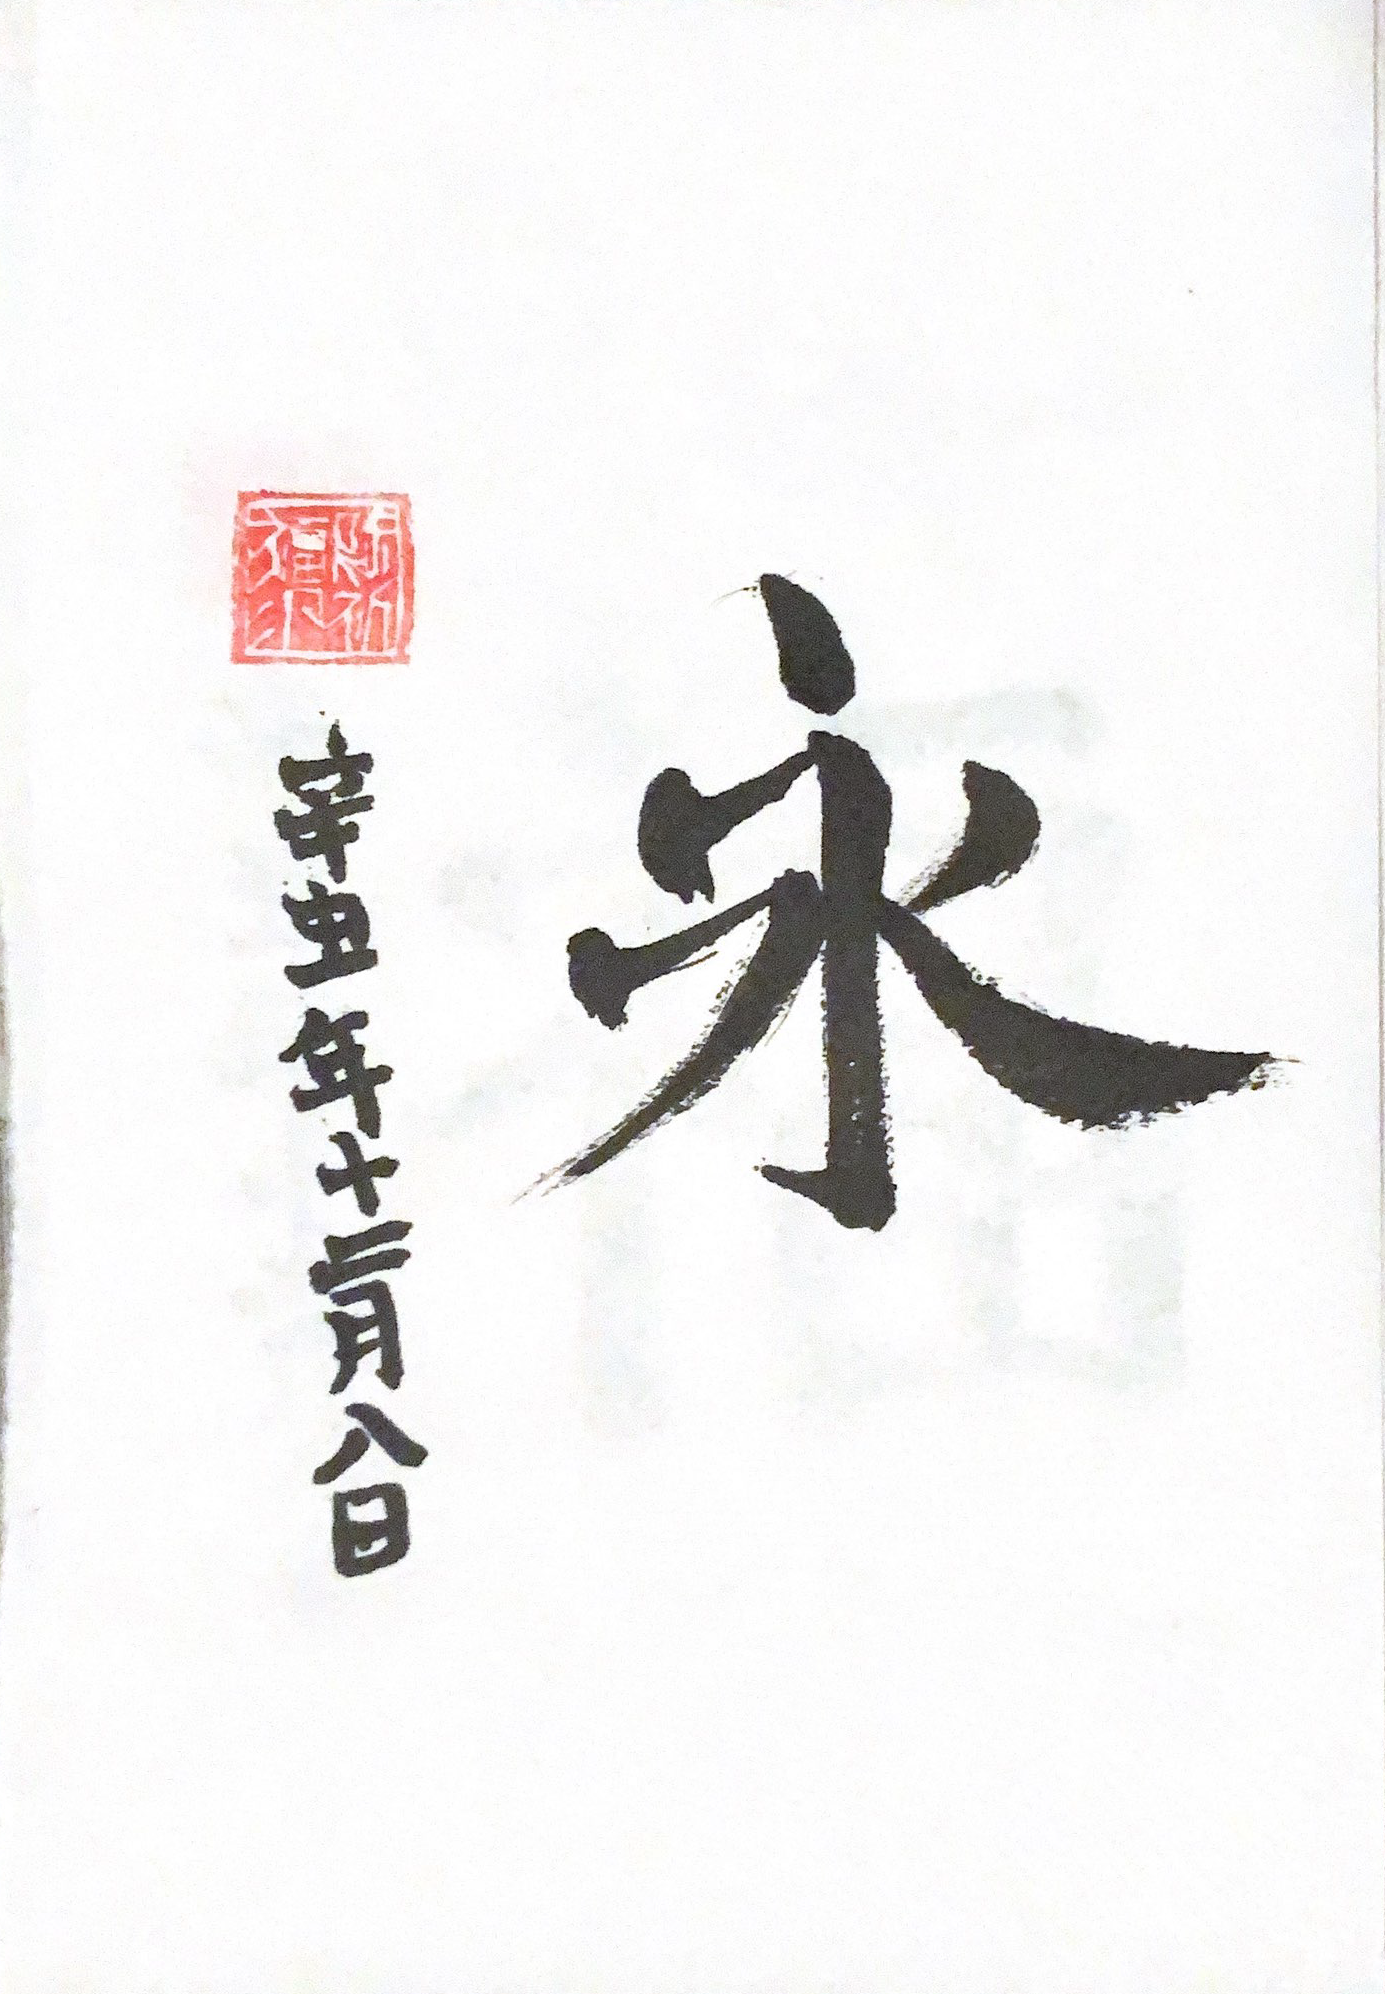 永
辛丑年十二月八日